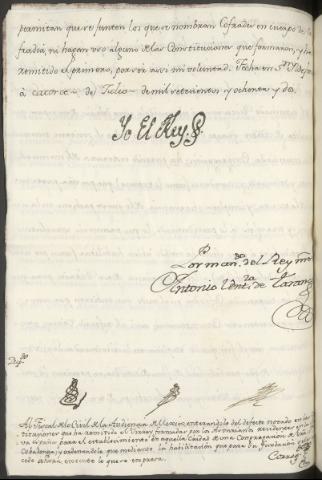 permitan que se junten los que se nombran Cofrades en cuerpo de
fradia, ni hagan uso alguno de las Constituciones que formaron, y ha
remitido el primero, por ser assi mi voluntad. Fecha en Sn. Yldefonso
à catorce de Julio de mil setecientos y ochenta y dos.
Yo El Rey.
Por mando. del Rey nro. 
Antonio Ventª. de Taranco
Dupdo.
Al Fiscal de lo Civil de la Audiencia de Mexico, enterandole del defecto notado en las
tituciones que ha remitido el Virrey, formadas por los residentes en la
va España para el establecimiento en aquella Ciudad de una Congregacion de
y ordenandole que mediante la habilitacion que para su fundacion
cede execute lo que se expresa.